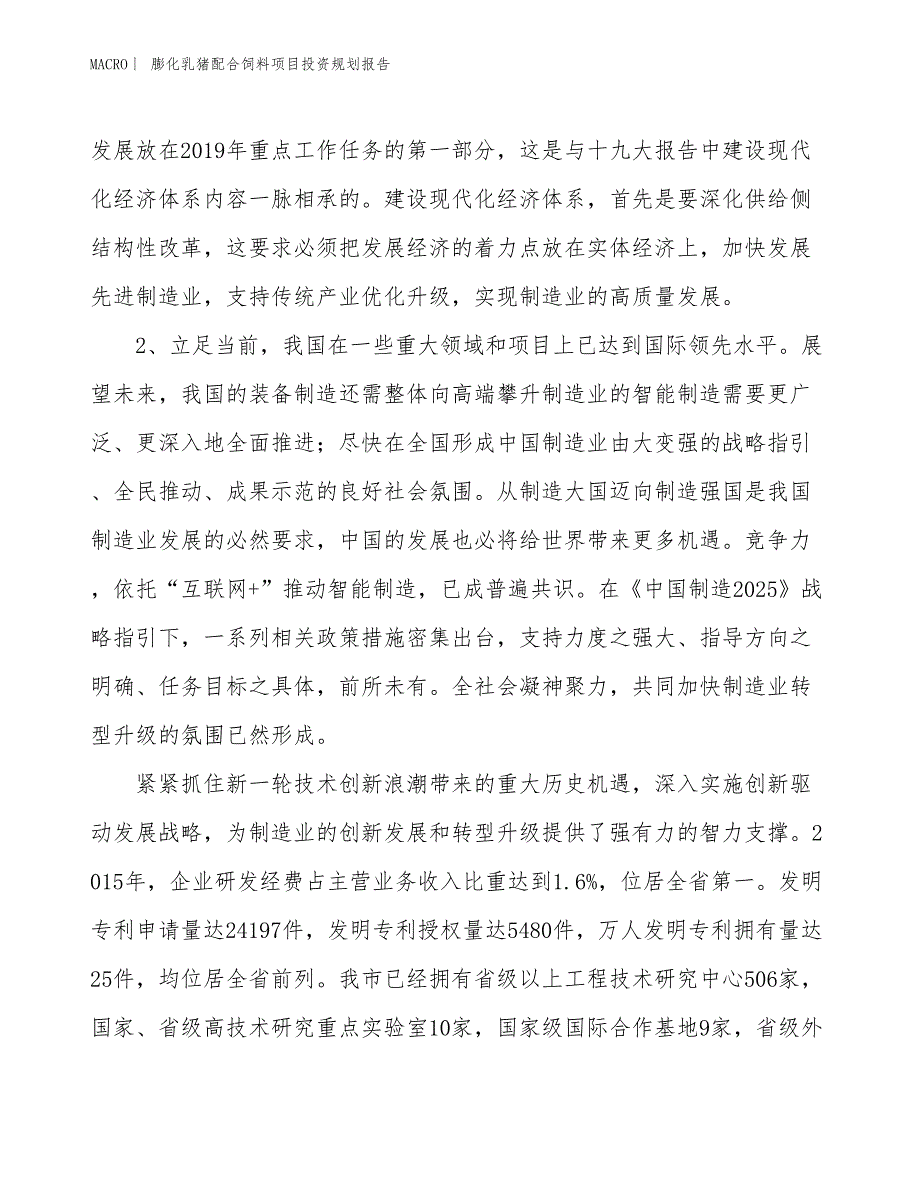 MACRO｜ 膨化乳猪配合饲料项目投资规划报告
发展放在2019年重点工作任务的第一部分，这是与十九大报告中建设现代
化经济体系内容一脉相承的。建设现代化经济体系，首先是要深化供给侧
结构性改革，这要求必须把发展经济的着力点放在实体经济上，加快发展
先进制造业，支持传统产业优化升级，实现制造业的高质量发展。
2、立足当前，我国在一些重大领域和项目上已达到国际领先水平。展
望未来，我国的装备制造还需整体向高端攀升制造业的智能制造需要更广
泛、更深入地全面推进；尽快在全国形成中国制造业由大变强的战略指引
、全民推动、成果示范的良好社会氛围。从制造大国迈向制造强国是我国
制造业发展的必然要求，中国的发展也必将给世界带来更多机遇。竞争力
，依托“互联网+”推动智能制造，已成普遍共识。在《中国制造2025》战
略指引下，一系列相关政策措施密集出台，支持力度之强大、指导方向之
明确、任务目标之具体，前所未有。全社会凝神聚力，共同加快制造业转
型升级的氛围已然形成。
紧紧抓住新一轮技术创新浪潮带来的重大历史机遇，深入实施创新驱
动发展战略，为制造业的创新发展和转型升级提供了强有力的智力支撑。2
015年，企业研发经费占主营业务收入比重达到1.6%，位居全省第一。发明
专利申请量达24197件，发明专利授权量达5480件，万人发明专利拥有量达
25件，均位居全省前列。我市已经拥有省级以上工程技术研究中心506家，
国家、省级高技术研究重点实验室10家，国家级国际合作基地9家，省级外